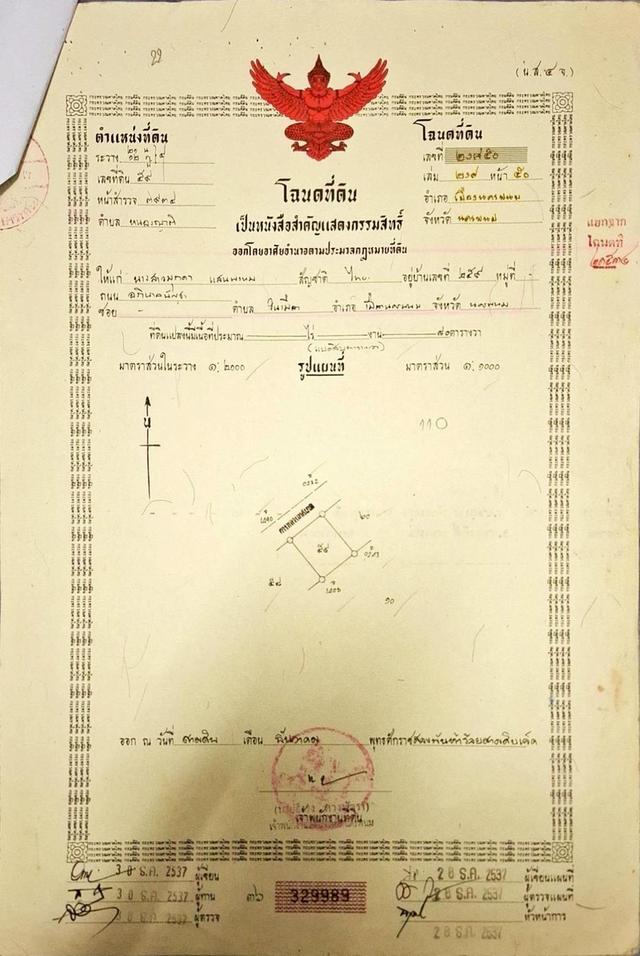 (น.ส.๔ จ.)
ตำแหน่งที่ดิน
ระวาง
เลขที่ดิน ๕๙
หน้าสำรวจ ๓๙๓๔
ตำบล หนองญาติ
โฉนดที่ดิน
เลขที่ ๒๑๙๕๐
เล่ม ๒๑๙ หน้า ๕๐
อำเภอ เมืองนครพนม
จังหวัด นครพนม
แยกจาก
โฉนดที่
โฉนดที่ดิน
เป็นหนังสือสำคัญแสดงกรรมสิทธิ์
ออกโดยอาศัยอำนาจตามประมวลกฎหมายที่ดิน
ให้แก่ นางสาว แสนพรหม สัญชาติ ไทย อยู่บ้านเลขที่ ๒๕๙ หมู่ที่ -
ถนน อภิบาลบัญชา
ซอย - ตำบล ในเมือง อำเภอ เมืองนครพนม จังหวัด นครพนม
ที่ดินแปลงนี้มีเนื้อที่ประมาณ ไร่ งาน ๘๐ ตารางวา
(แปดสิบตารางวา)
มาตราส่วนในระวาง ๑:๒๐๐๐ รูปแผนที่ มาตราส่วน ๑:๑๐๐๐
น
110
๖๐
๕๙
๕๘
๑๐
ออก ณ วันที่ สามสิบ เดือน ธันวาคม พุทธศักราชสองพันห้าร้อยสามสิบเจ็ด
เจ้าพนักงานที่ดิน
30 ธ.ค. 2537 ผู้เขียน
30 ธ.ค. 2537 ผู้ทาน
30 ธ.ค. 2537 ผู้ตรวจ
๓๖ 329989
28 ธ.ค. 2537 ผู้เขียนแผนที่
28 ธ.ค. 2537 ผู้ตรวจแผนที่
หัวหน้าการ
28 ธ.ค. 2537